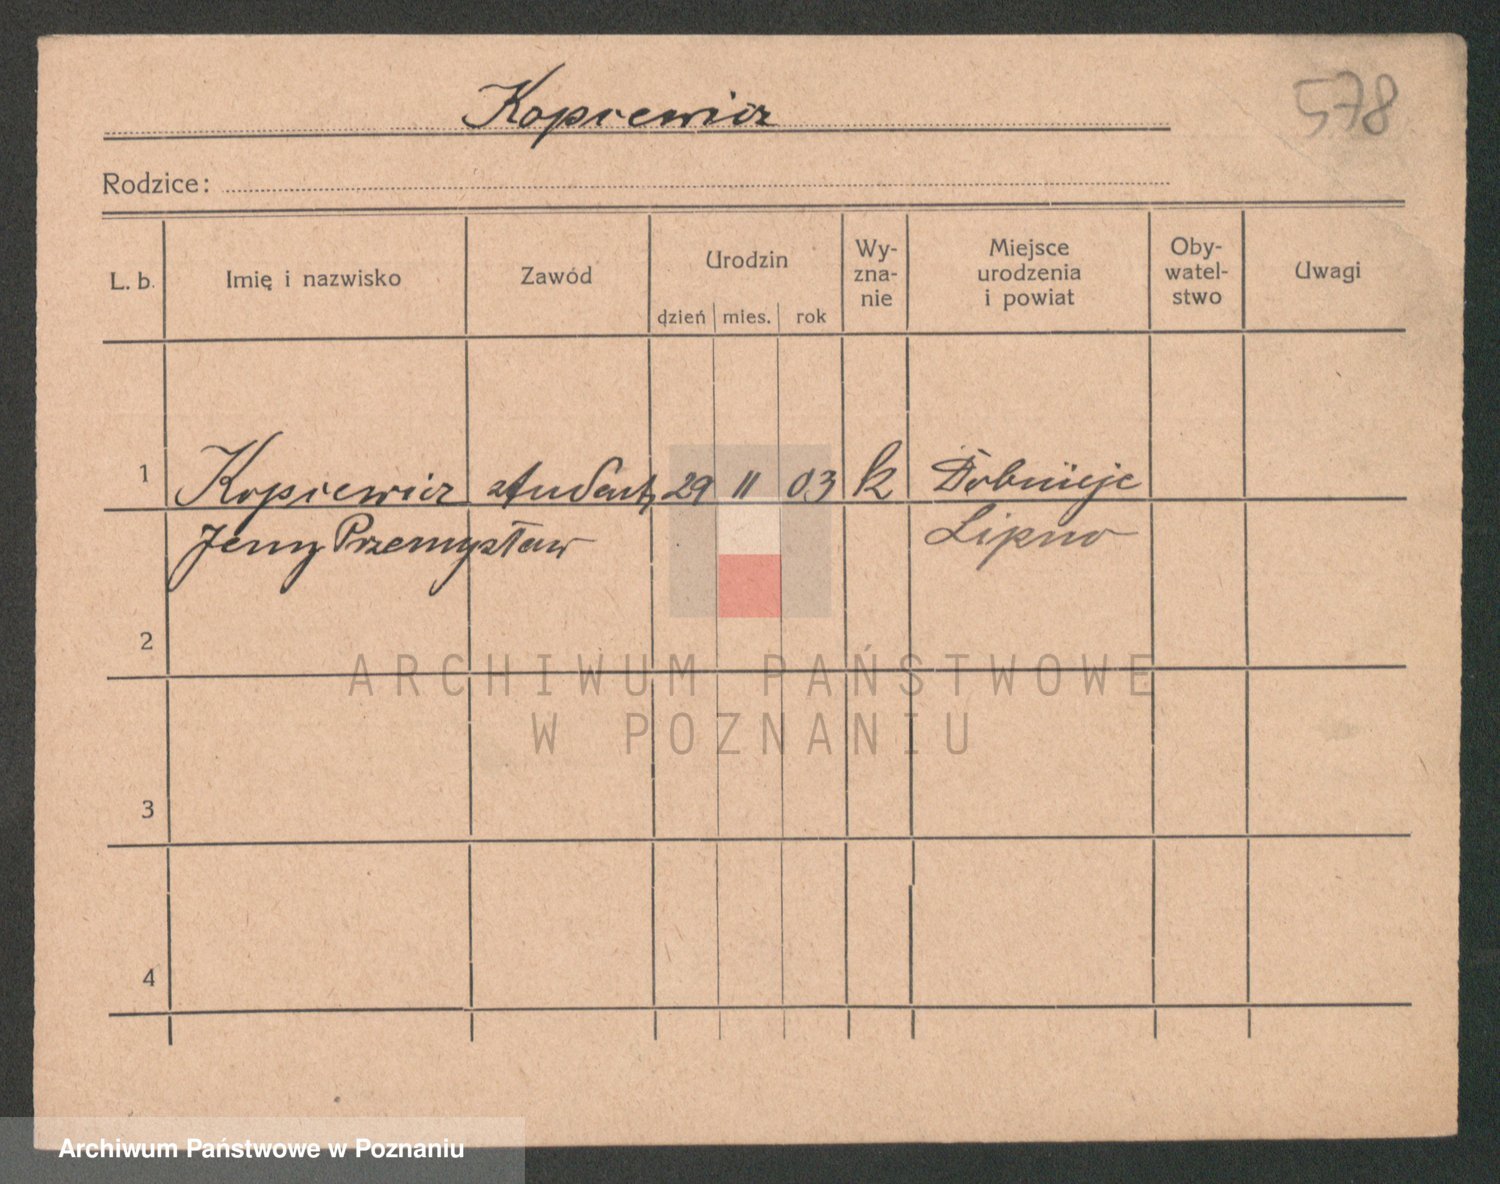 Kopiewicz
578
Rodzice:
L. b. Imię i nazwisko Zawód Urodzin dzień mies. rok Wy-zna-nie Miejsce urodzenia i powiat Oby-watel-stwo Uwagi
1 Kopiewicz student 29 11 03 k
Jerzy Przemysław Lipno
2
3
4
ARCHIWUM PAŃSTWOWE
W POZNANIU
Archiwum Państwowe w Poznaniu